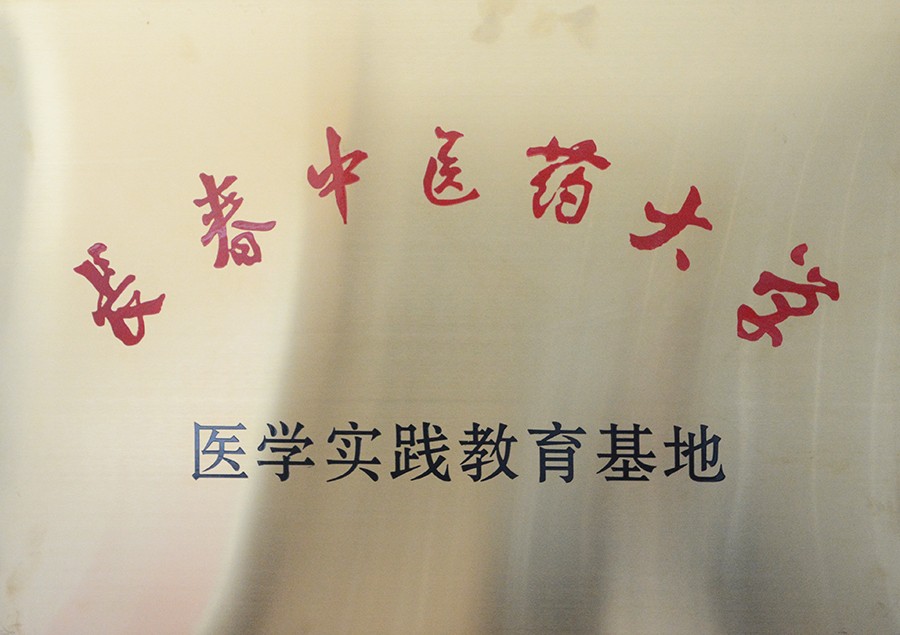 长春中医药大学
医学实践教育基地